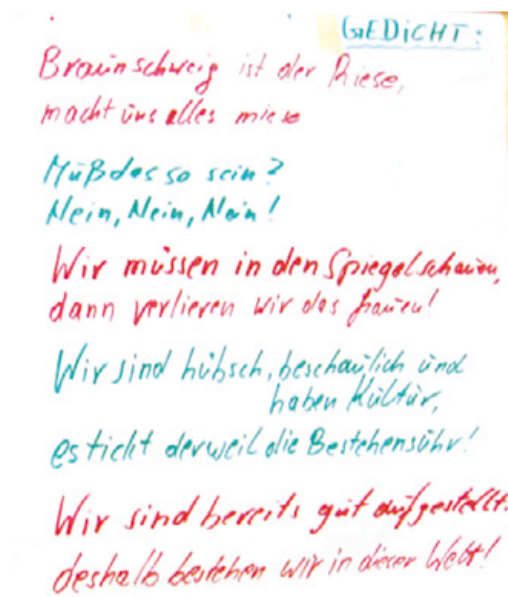 GEDICHT:
Braunschweig ist der Riese,
macht uns alles miese
Muß das so sein?
Nein, Nein, Nein!
Wir müssen in den Spiegel schauen,
dann verlieren wir das
Wir sind hübsch, beschaulich und
haben Kultur,
es tickt derweil die Bestehensuhr!
Wir sind bereits gut aufgestellt.
deshalb bestehen wir in dieser Welt!